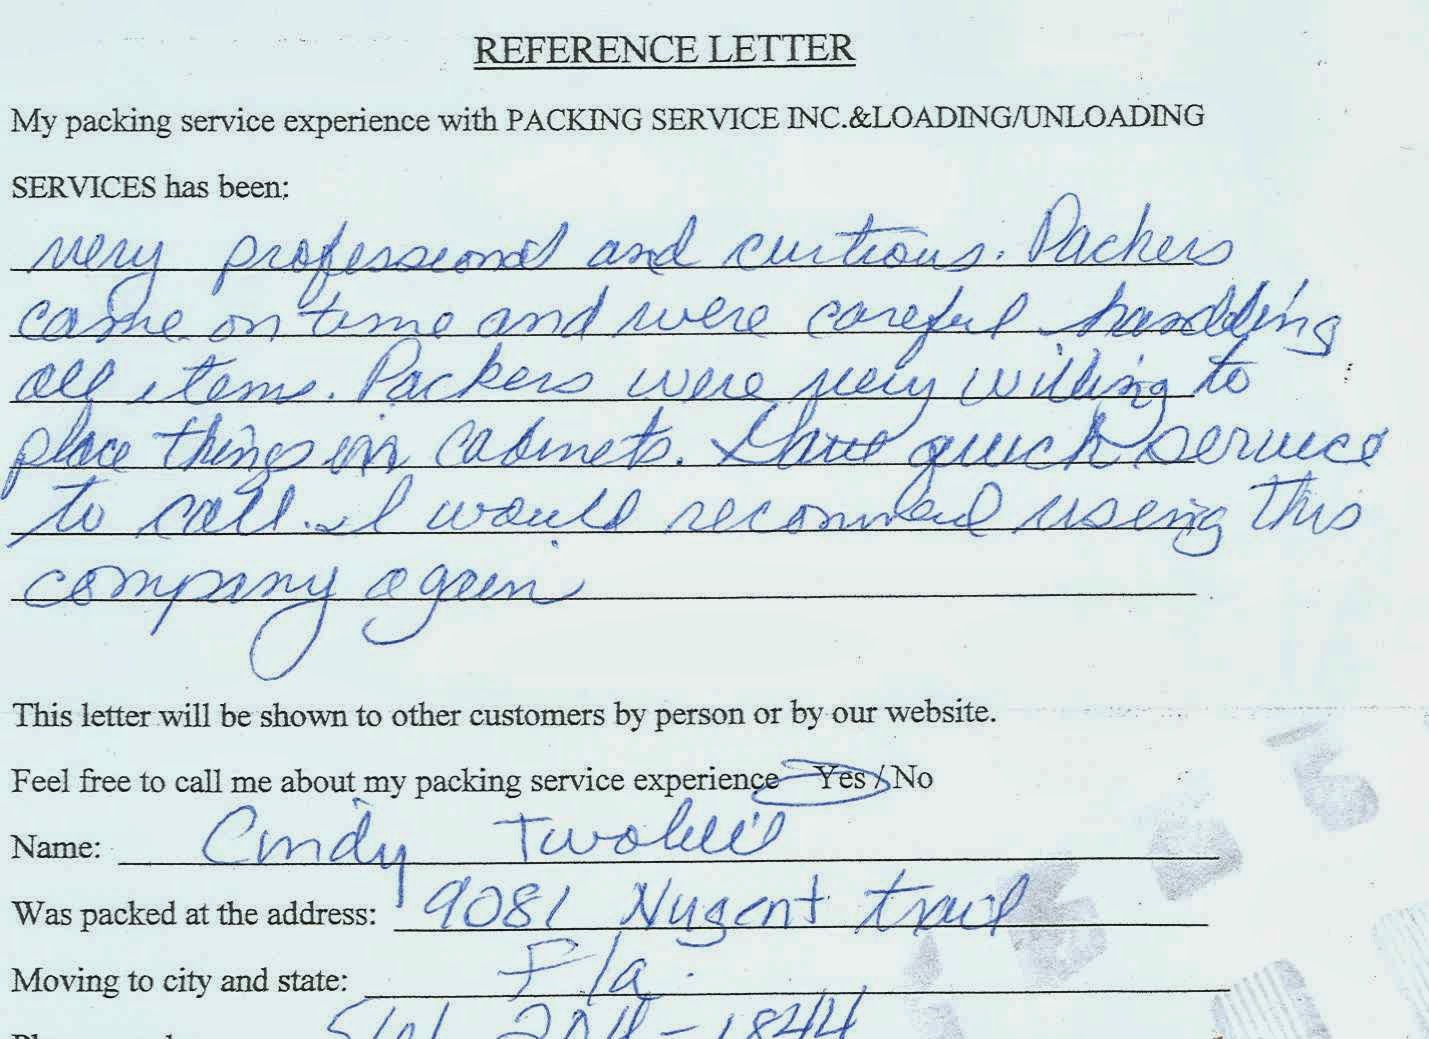 REFERENCE LETTER
My packing service experience with PACKING SERVICE INC.&LOADING/UNLOADING
SERVICES has been:
very professional and curtious. Packers
came on time and were careful handling
all items. Packers were very willing to
place things in cabinets. Have quick service
to call. I would recommend using this
company again
This letter will be shown to other customers by person or by our website.
Feel free to call me about my packing service experience Yes / No
Name: Cindy
Was packed at the address: 9081 Nugent trail
Moving to city and state: Fla.
204-1844